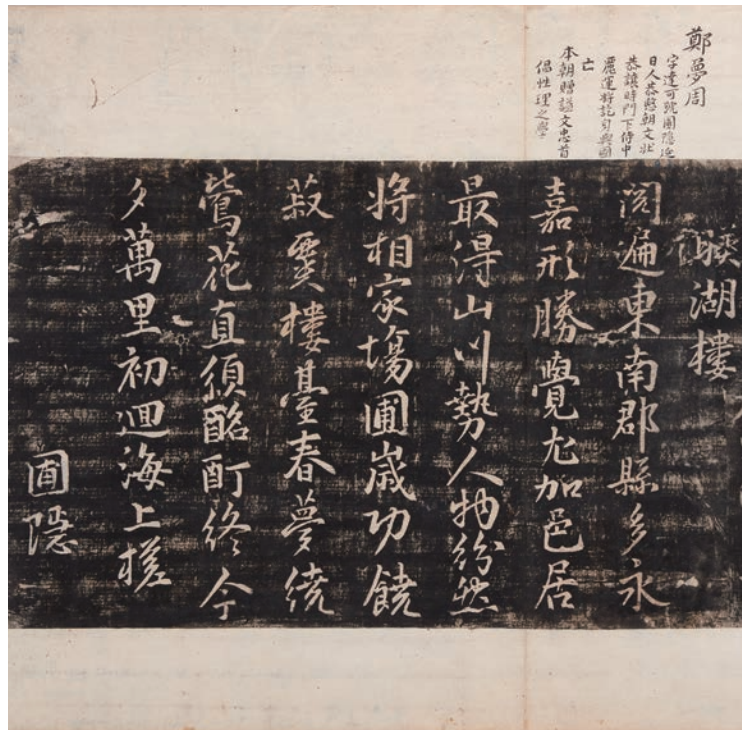 鄭夢周
字達可號圃隱延
日人恭愍朝文壯
恭讓時門下侍中
麗運將訖身與國
亡
本朝贈諡文忠首
倡性理之學
暎湖樓
閱遍東南郡縣多永
嘉形勝覺尤加邑居
最得山川勢人物紛然
將相家場圃歲功饒
菽粟樓臺春夢繞
鶯花直須酩酊終今
夕萬里初迴海上槎
圃隱